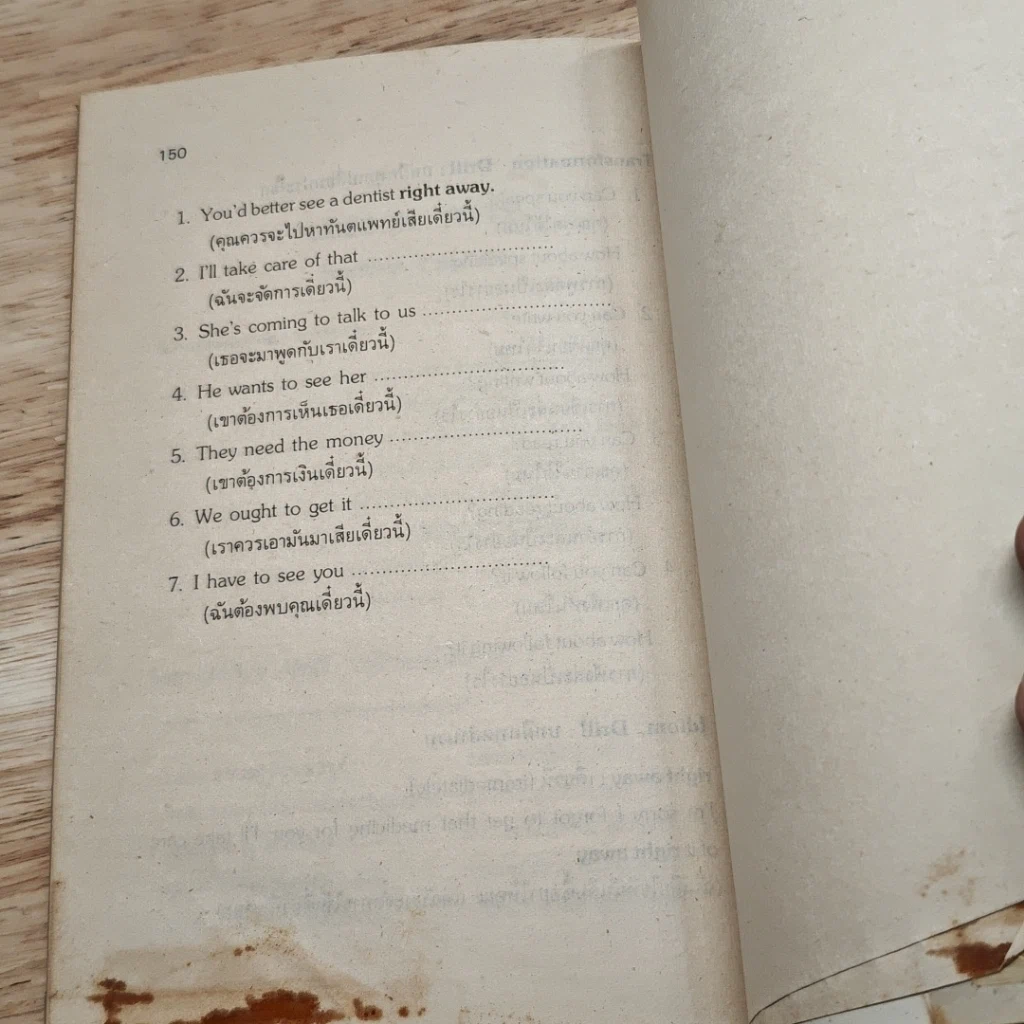 150
1. You'd better see a dentist right away.
(คุณควรจะไปหาทันตแพทย์เสียเดี๋ยวนี้)
2. I'll take care of that ........................................
(ฉันจะจัดการเดี๋ยวนี้)
3. She's coming to talk to us ........................................
(เธอจะมาพูดกับเราเดี๋ยวนี้)
4. He wants to see her ........................................
(เขาต้องการเห็นเธอเดี๋ยวนี้)
5. They need the money ........................................
(เขาต้องการเงินเดี๋ยวนี้)
6. We ought to get it ........................................
(เราควรเอามันมาเสียเดี๋ยวนี้)
7. I have to see you ........................................
(ฉันต้องพบคุณเดี๋ยวนี้)